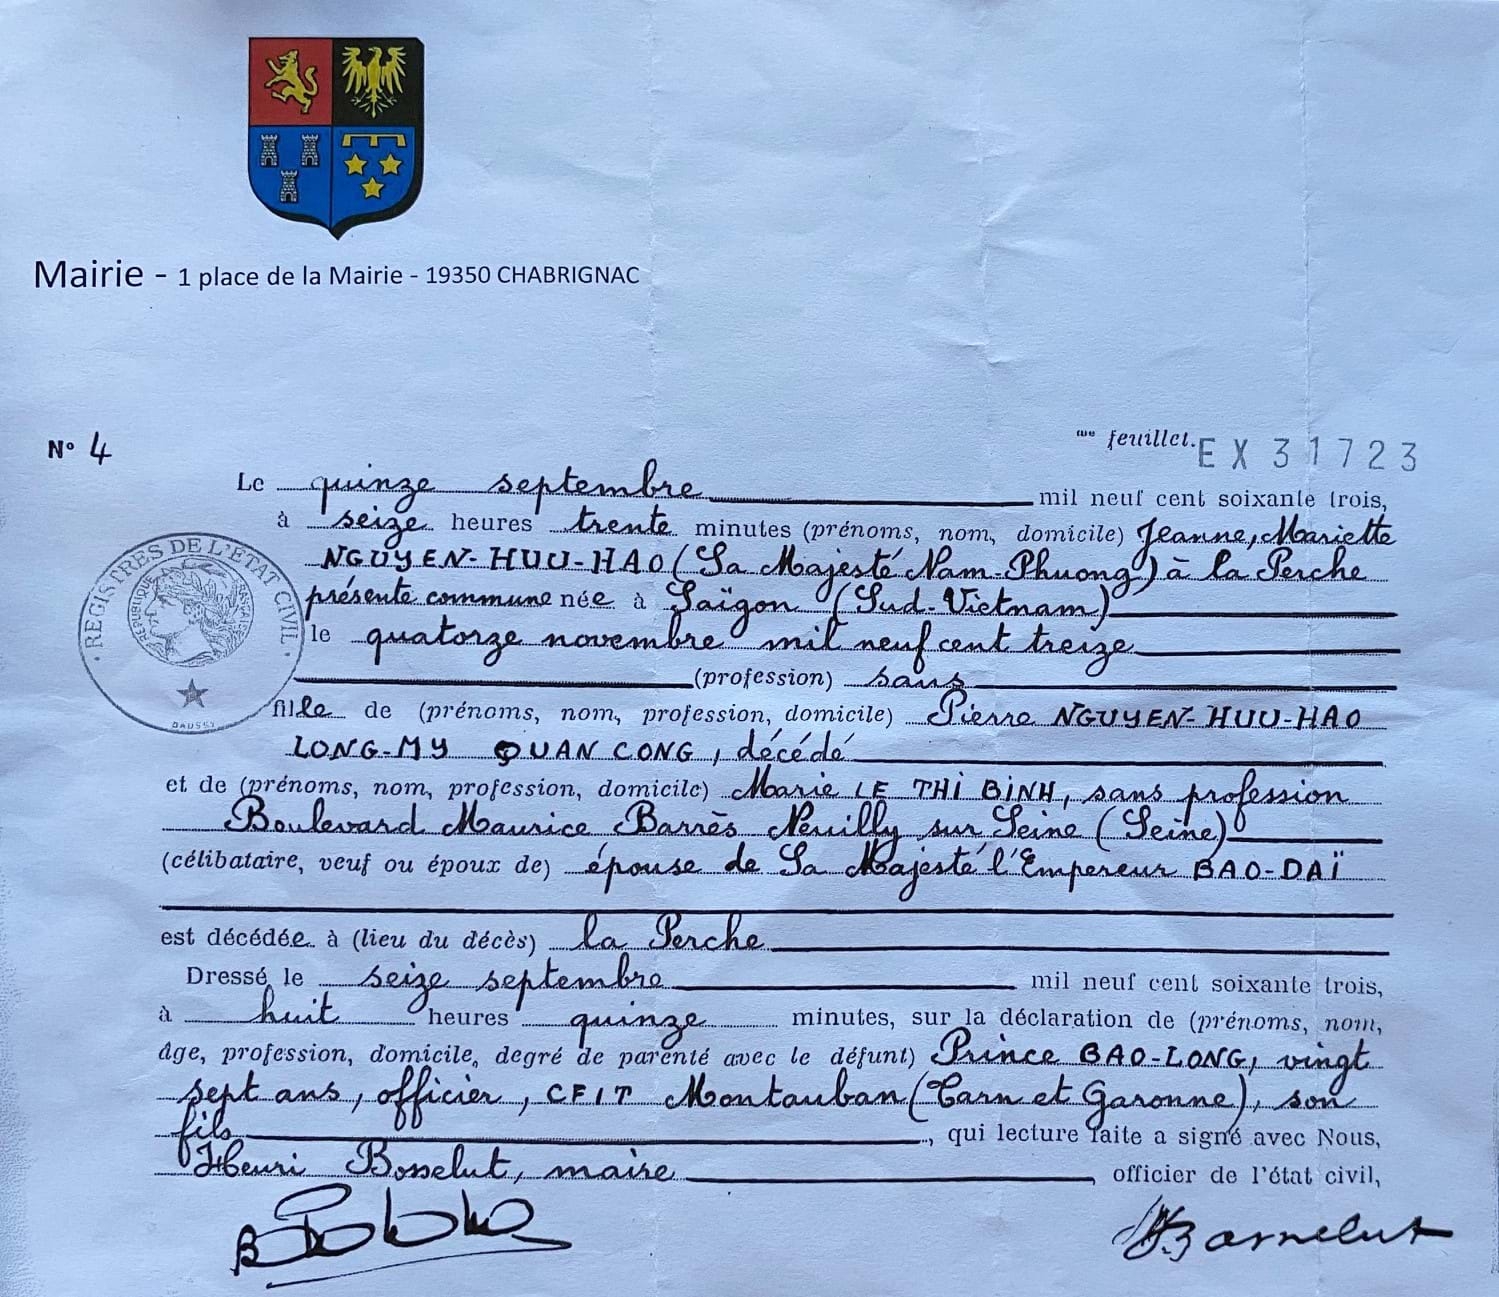 Mairie - 1 place de la Mairie - 19350 CHABRIGNAC
N° 4
me feuillet. EX 31723
Le quinze septembre mil neuf cent soixante trois,
à seize heures trente minutes (prénoms, nom, domicile) Jeanne, Mariette
NGUYEN-HUU-HAO (Sa Majesté Nam Phuong) à la Perche
présente commune née à Saïgon (Sud-Vietnam)
le quatorze novembre mil neuf cent treize
(profession) sans
fille de (prénoms, nom, profession, domicile) Pierre NGUYEN-HUU-HAO
LONG-MY QUAN CONG, décédé
et de (prénoms, nom, profession, domicile) Marie LE THI BINH, sans profession
Boulevard Maurice Barrès Neuilly sur Seine (Seine)
(célibataire, veuf ou époux de) épouse de Sa Majesté l'Empereur BAO-DAÏ
est décédée à (lieu du décès) la Perche
Dressé le seize septembre mil neuf cent soixante trois,
à huit heures quinze minutes, sur la déclaration de (prénoms, nom,
âge, profession, domicile, degré de parenté avec le défunt) Prince BAO-LONG, vingt
sept ans, officier, CFIT Montauban (Tarn et Garonne), son
fils, qui lecture faite a signé avec Nous,
Henri Bosselut, maire, officier de l'état civil,
REGISTRES DE L'ÉTAT CIVIL
RÉPUBLIQUE FRANÇAISE
DAUSSY